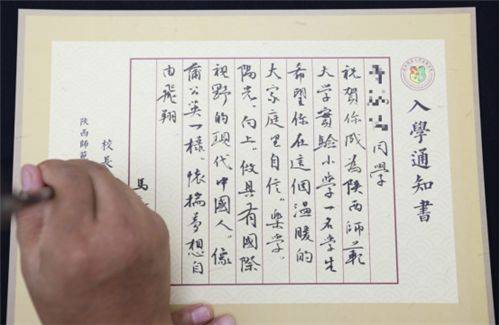 入學通知書
同學
祝賀你成為陝西師範
大学實驗小學一名學生
希望你在這個溫暖的
大家庭里自信。樂学。
陽光。向上。做具有國際
視野的現代中國人。像
蒲公英一樣。懷揣夢想自
由飛翔
校長
馬
陝西師範